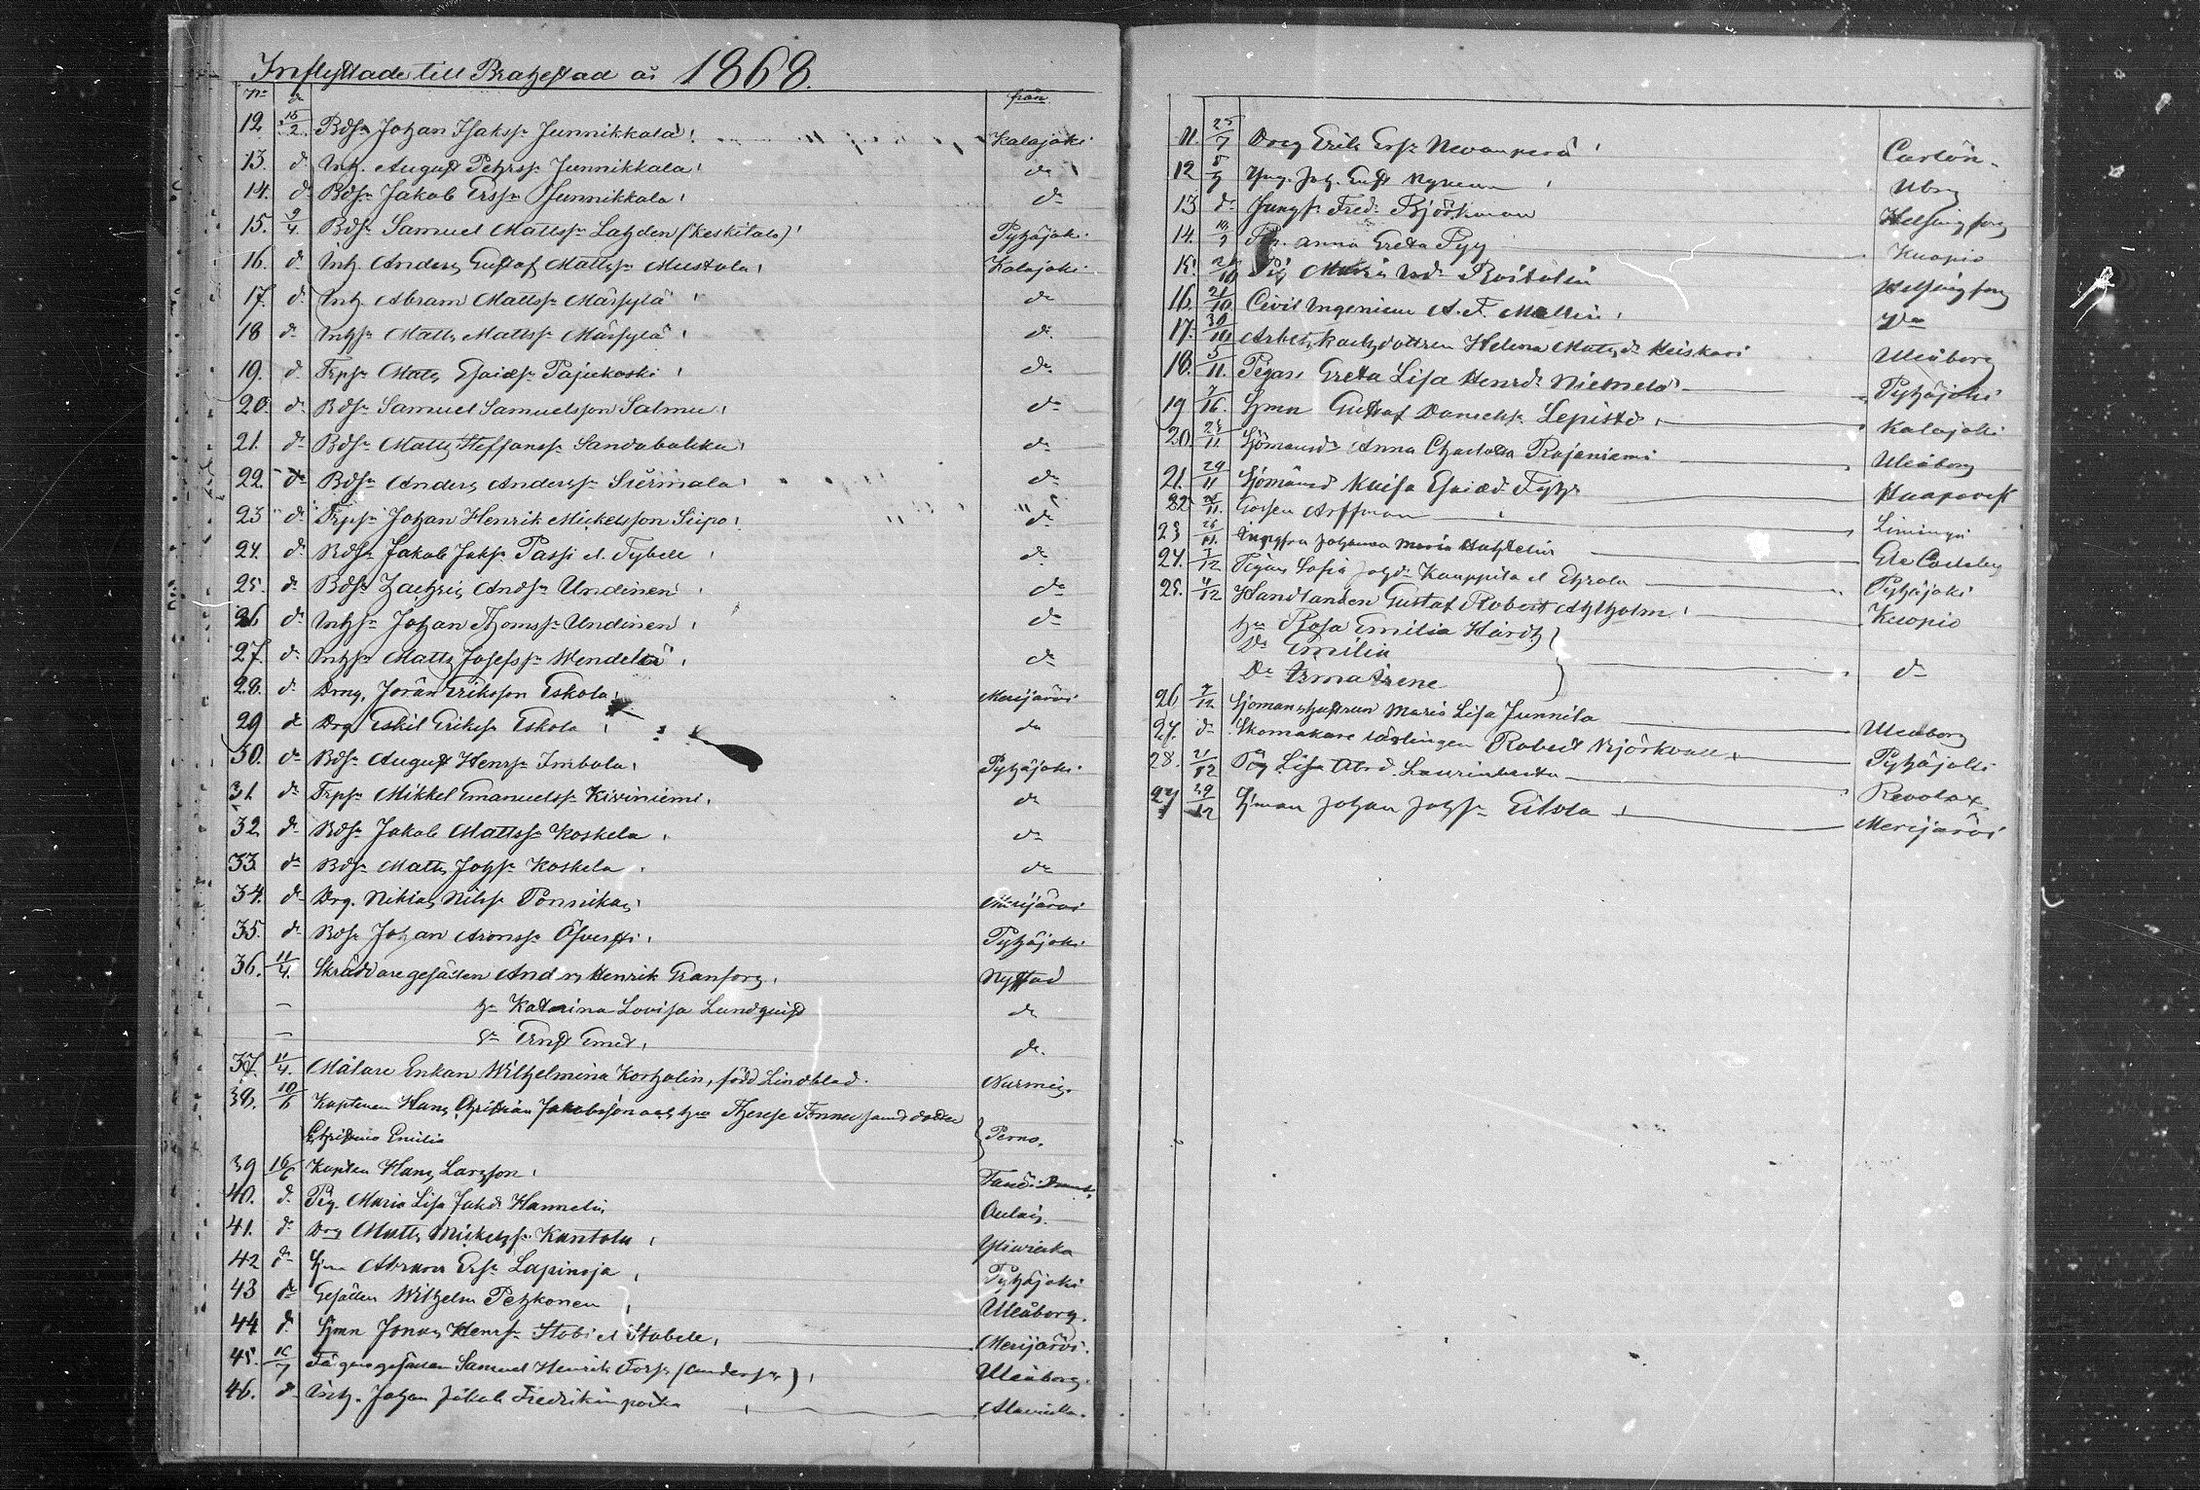 Inflyttade till Brahestad år 1868.
No d från
12 15/2 Bdsn Johan Isakss. Junnikkala Kalajoki
13. dn Inh. August Pehrss. Junnikkala dn
14. dn Bdsn Jakob Erssn Junnikkala dn
15. 9/4 Bdsn Samuel Mattssn Lahden (Keskitalo) Pyhäjoki
16. dn Inh. Anders Gustaf Mattssn Mustola Kalajoki
17. dn Inh Abram Mattssn Märsylä dn
18 dn Inhsn Matts Mattssn Märsylä dn
19. dn Trpsn Matts Esaiæsn Pajukoski dn
20. dn Bdsn Samuel Samuelsson Salmu dn
21. dn Bdsn Matts Steffanssn dn
22. dn Bdsn Anders Anderssn dn
23 dn Trpsn Johan Henrik Mickelsson Siipo dn
24. dn Bdsn Jakob Jakssn Passi el. Tybele dn
25. dn Bdsn Zachris Andsn Undinen dn
26 dn Inhsn Johan Thomssn Undinen dn
27. dn Inhsn Matts Josefssn Wendelä dn
28. dn Drng. Jöran Eriksson Eskola Merijärvi
29 dn Drg Eskil Erikssn Eskola dn
30. dn Bdsn August Henrssn Imbola Pyhäjoki
31. dn Trpsn Mikkel Emanuelssn Kiviniemi dn
32 dn Bdsn Jakob Mattssn Koskela dn
33 dn Bdsn Matts Johssn Koskela dn
34. dn Drg. Niklas Nilssn Merijärvi
35. dn Bdsn Johan Aronssn Öfversti Pyhäjoki
36. 11/4. Skräddaregesällen And rs Henrik Granfors Nystad
— hu Katarina Lovisa Lundquist dn
— sn Ernst Emil dn
37. 11/4. Målare Enkan Wilhelmina Korholin, född Lindblad. Nurmis.
38. 10/6 Kaptenen Hans Christian Jakobsson och hu Therese samt dotter
Christina Emilia } Perno.
39 16/6 Kapten Hans Larsson Fanö
40. dn Pig. Maria Lisa Jakdr Hannelis Oulais.
41. dn Drg Matts Mickelssn Kantola Ylivieska
42 dn Sjmn Abram Erssn Lapinoja Pyhäjoki
43 dn Gesällen Wilhelm Pehkonen Uleåborg.
44 dn Sjmn Jonas Henrssn Stobi el Stabele Merijärvi.
45. 16/7 Samuel Henrik Forss (Anderssn) Uleåborg.
46. dn Inh. Johan Jakob Alavieska.
11. 25/7 Drng Erik Erssn Nevanperä Carlön.
12 5/9 Yng. Joh. Gust Nyman Ubrg
13 dn Jungfr Fred. Björkman Helsingfors
14. 10/9 Anna Greta Pyy Kuopio
15. Pig Maria Helsingfors
16. 21/10 Civil Ingeniern A. F. Mellin Do
17. 30/10 Arbetskarlsdottren Helena Matsdr Keiskari Uleåborg
18. 5/11. Pigan Greta Lisa Henrdr Niemelä Pyhäjoki
19 7/11. Sjmn Gustaf Danielssn Lepistö Kalajoki
20. 23/11 Sjömansd. Anna Charlotta Rajaniemi Uleåborg
21. 24/11 Kaisa Esaiæd. Haapavesi
22 /11. Gossen Arffman Limingo
23 26/11. Jungfru Johanna Maria Gla Carleby
24. /12 Pigan Sofia Johdr Kauppila el Pyhäjoki
25. 4/12 Handlanden Gustaf Robert Ahlholm Kuopio
hu Rosa Emilia Hårdh
Dr Emilia
Dr Irma Irene dn
26 7/12 Sjömanshustrun Maria Lisa Junnila Uleåborg
27. dn Skomakare lärlingen Robert Björkvall Pyhäjoki
28. 21/12 Pig Lisa Abrd. Revolax
27 29/12 Sjman Johan Johssn Eilola Merijärvi